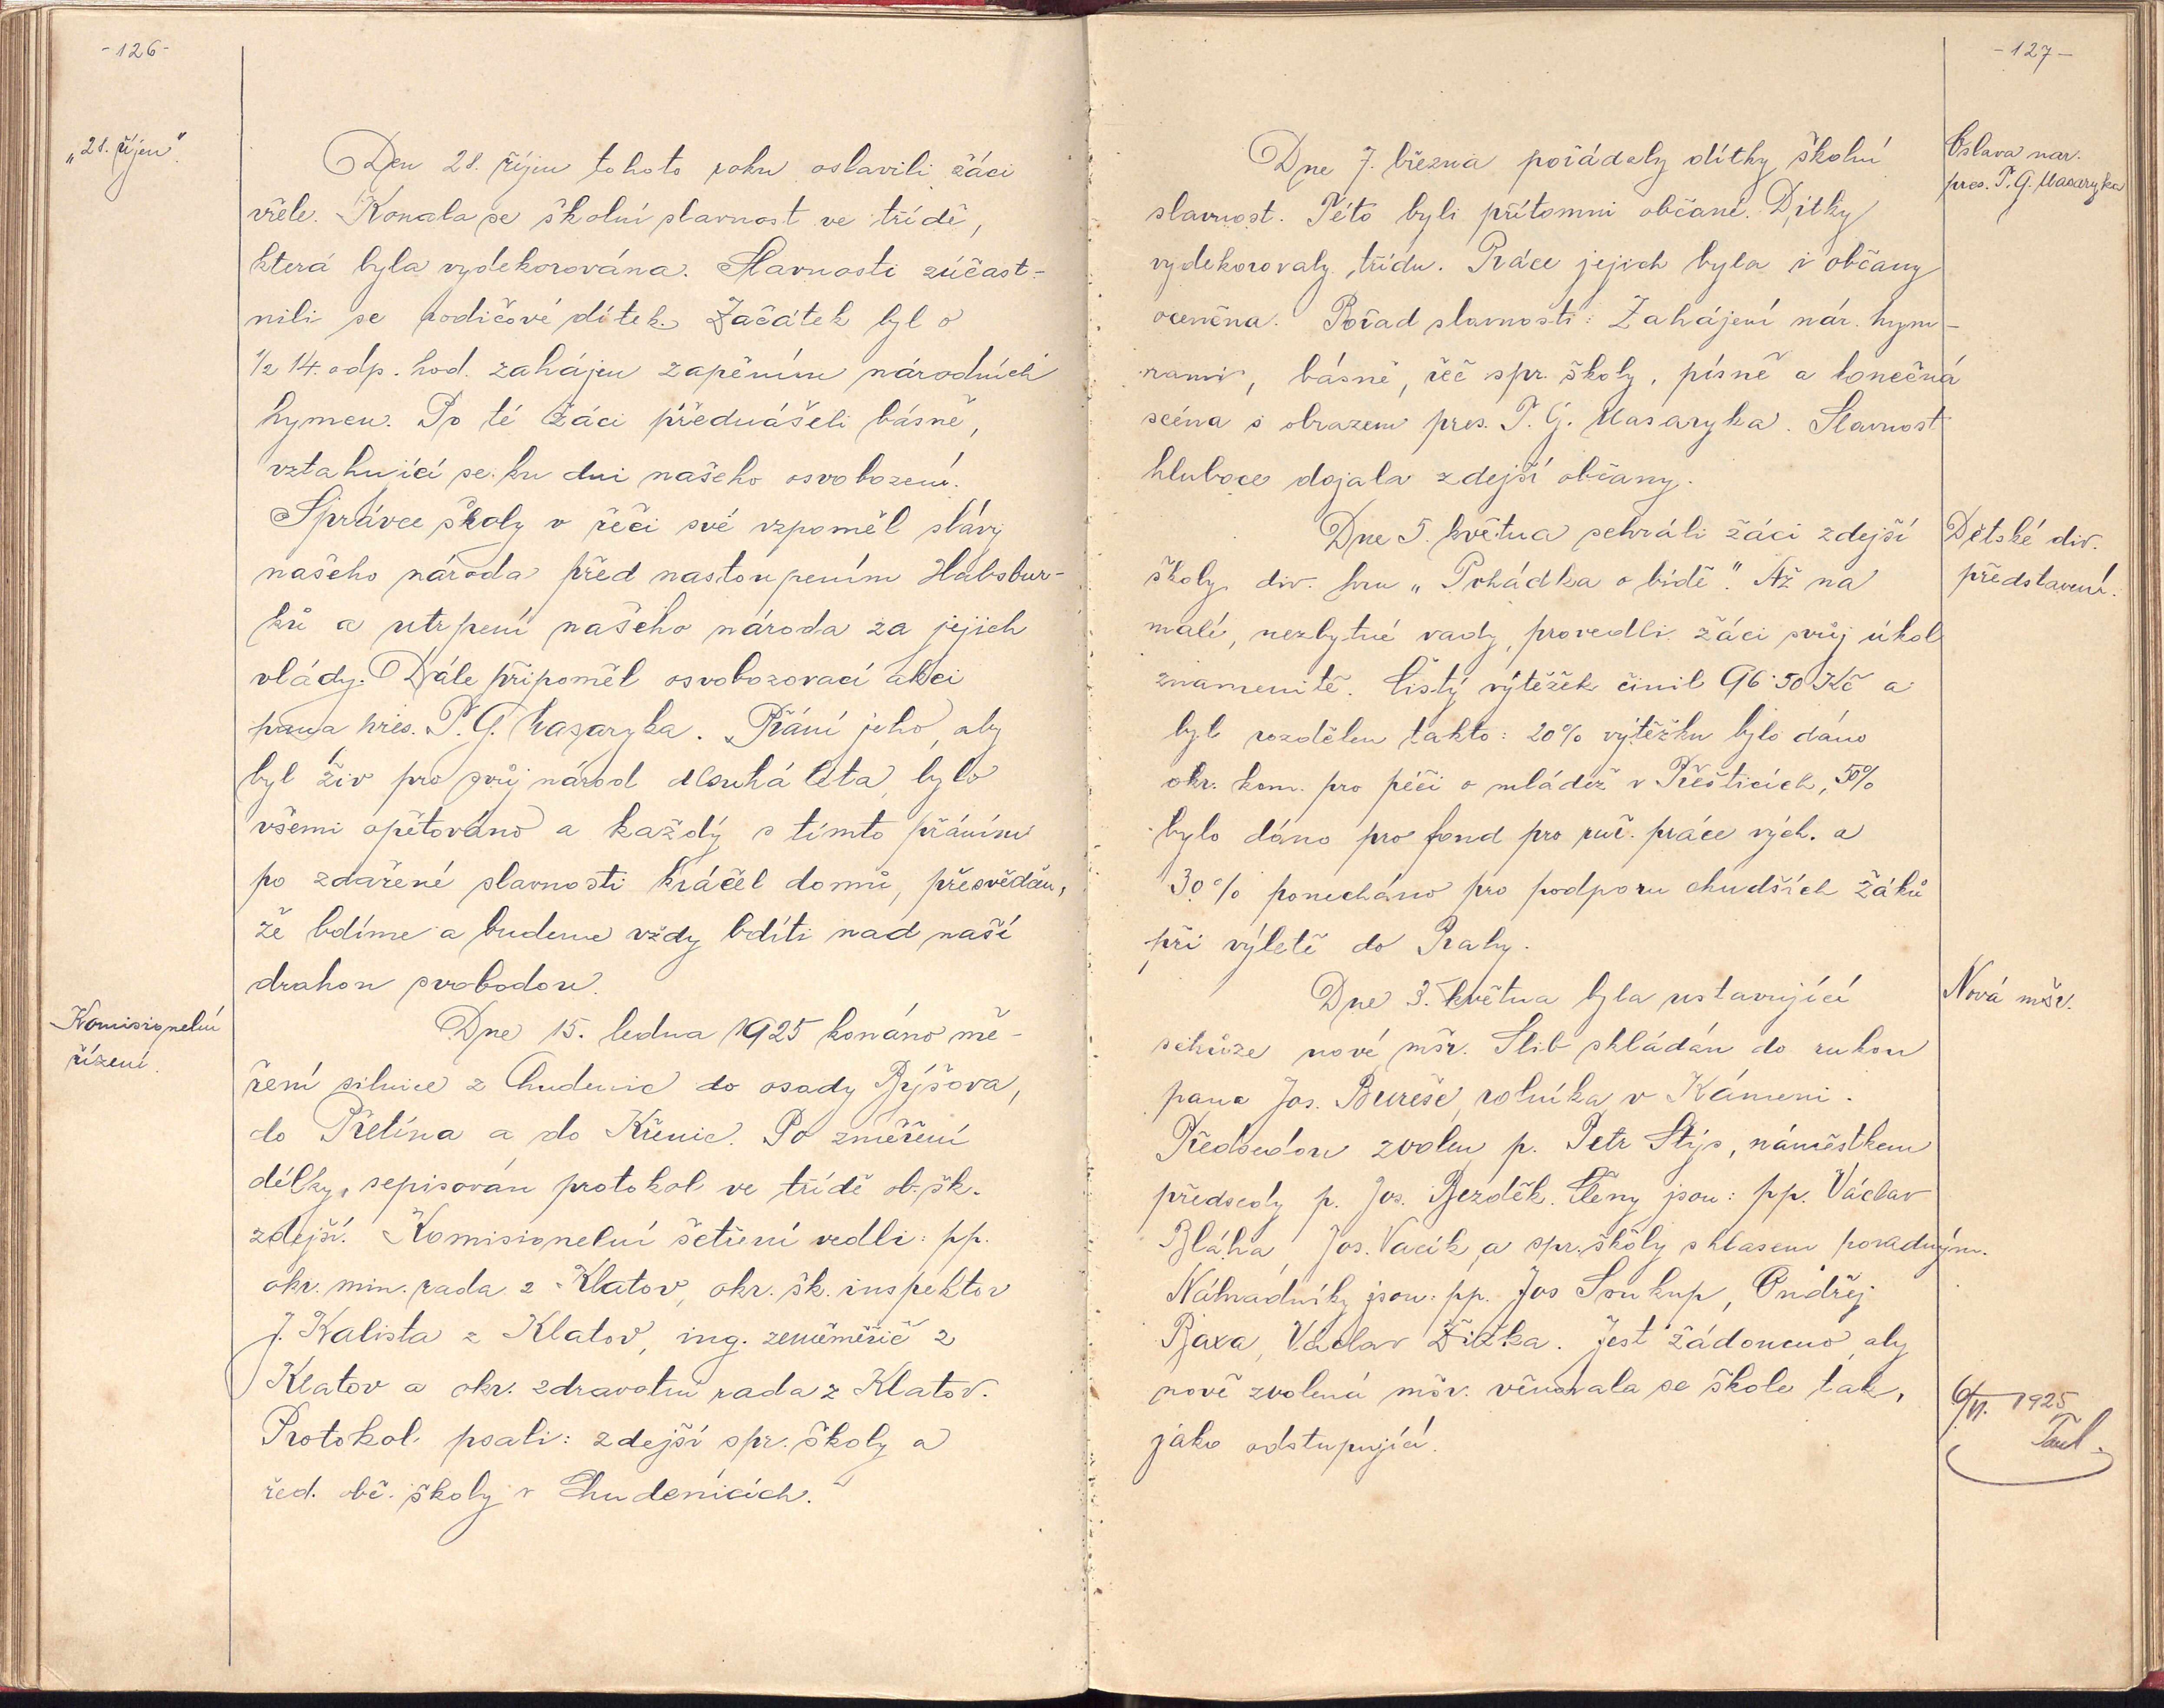 -126-
„28. říjen".
Den 28. říjen tohoto roku oslavili žáci
vřele. Konala se školní slavnost ve třídě,
která byla vydekorována. Slavnosti zúčast-
nili se rodičové dítek. Začátek byl o
½ 14. odp. hod. zahájen zapěním národních
hymen. Po té žáci přednášeli básně,
vztahující se ku dni našeho osvobození.
Správce školy v řeči své vzpoměl slávy
našeho národa před nastoupením Habsbur-
ků a utrpení našeho národa za jejich
vlády. Dále připoměl osvobozovací akci
pana pres. T. G. Masaryka. Přání jeho, aby
byl živ pro svůj národ dlouhá léta, bylo
všemi opětováno a každý s tímto přáním
po zdařené slavnosti kráčel domů, přesvědčen,
že bdíme a budeme vždy bdíti nad naší
drahou svobodou.
Komisionelní
řízení.
Dne 15. ledna 1925 konáno mě-
ření silnice z Chudenic do osady Býšova,
do Přetína a do Křenic. Po změření
délky, sepisován protokol ve třídě ob. šk.
zdejší. Komisionelní šetření vedli: pp.
okr. min. rada z Klatov, okr. šk. inspektor
J. Kalista z Klatov, ing. zeměměřič z
Klatov a okr. zdravotní rada z Klatov.
Protokol psali: zdejší spr. školy a
řed. obč. školy v Chudenicích.
-127-
Oslava nar.
pres. T. G. Masaryka
Dne 7. března pořádaly dítky školní
slavnost. Této byli přítomni občané. Dítky
vydekorovaly třídu. Práce jejich byla i občany
oceněna. Pořad slavnosti: Zahájení nár. hym-
nami, básně, řeč spr. školy, písně a konečná
scéna s obrazem pres. T. G. Masaryka. Slavnost
hluboce dojala zdejší občany.
Dětské div.
představení.
Dne 5. května sehráli žáci zdejší
školy div. hru „Pohádka o bídě". Až na
malé, nezbytné vady, provedli žáci svůj úkol
znamenitě. Čistý výtěžek činil 96·50 Kč a
byl rozdělen takto: 20% výtěžku bylo dáno
okr. kom. pro péči o mládež v Přešticích, 50%
bylo dáno pro fond pro ruč. práce vých. a
30% ponecháno pro podporu chudších žáků
při výletě do Prahy.
Nová mšr.
Dne 3. května byla ustavující
schůze nové mšr. Slib skládán do rukou
pana Jos. Bureše, rolníka v Kámeni.
Předsedou zvolen p. Petr Stýs, náměstkem
předsedy p. Jos. Bezděk. Členy jsou: pp. Václav
Bláha, Jos. Vacík, a spr. školy s hlasem poradným.
Náhradníky jsou: pp. Jos Soukup, Ondřej
Baxa, Václav Žižka. Jest žádoucno, aby
nově zvolená mšr. věnovala se škole tak,
jako odstupující.
6/VI. 1925